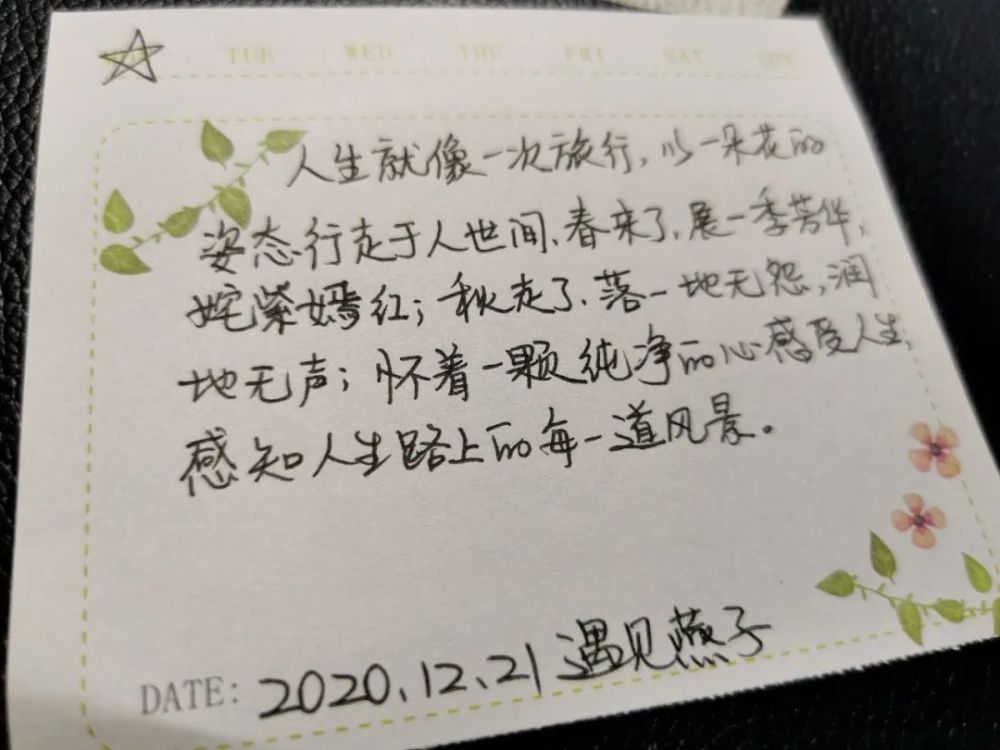 TUE WED THU FRI SAT SUN
人生就像一次旅行,以一朵花的
姿态行走于人世间、春来了,展一季芳华,
姹紫嫣红;秋走了、落一地无怨,润
地无声;怀着一颗纯净的心感受人生,
感知人生路上的每一道风景。
DATE: 2020.12.21 遇见燕子